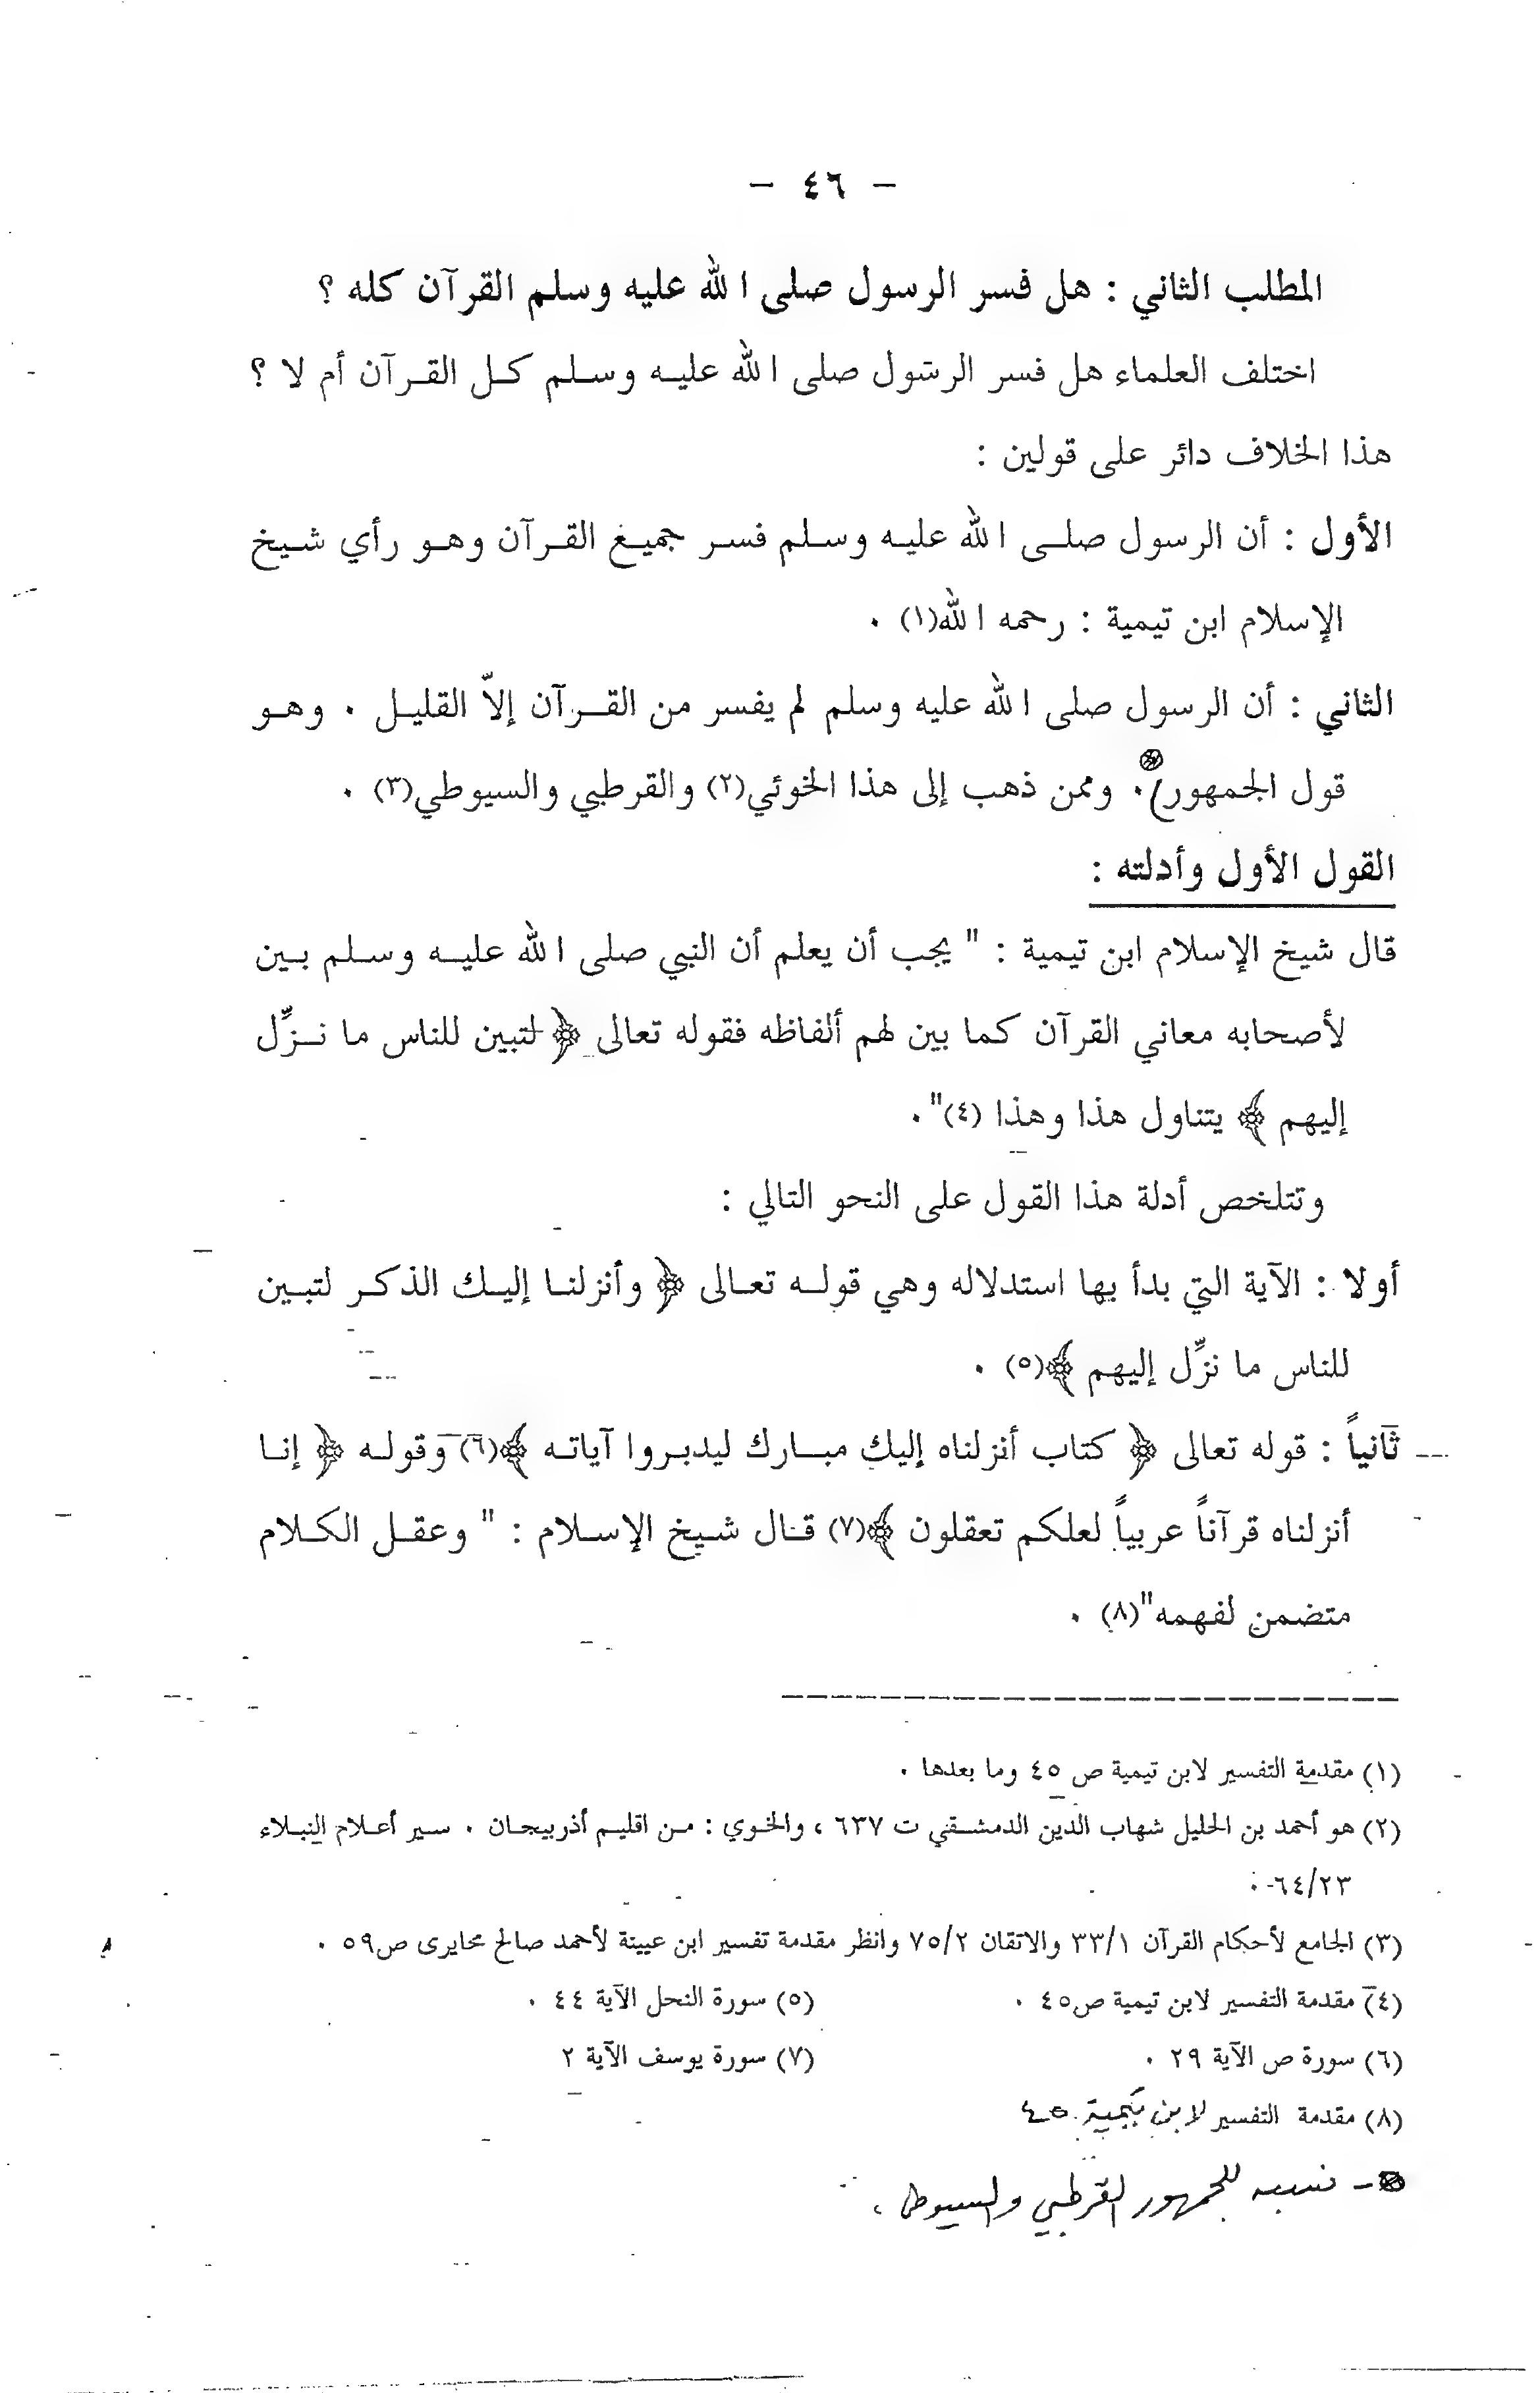 - ٤٦ -
المطلب الثاني : هل فسر الرسول صلى الله عليه وسلم القرآن كله ؟
اختلف العلماء هل فسر الرسول صلى الله عليه وسلم كل القرآن أم لا ؟
هذا الخلاف دائر على قولين :
الأول : أن الرسول صلى الله عليه وسلم فسر جميع القرآن وهو رأي شيخ
الإسلام ابن تيمية : رحمه الله(١) .
الثاني : أن الرسول صلى الله عليه وسلم لم يفسر من القرآن إلاّ القليل . وهو
قول الجمهور . وممن ذهب إلى هذا الخوئي(٢) والقرطبي والسيوطي(٣) .
القول الأول وأدلته :
قال شيخ الإسلام ابن تيمية : " يجب أن يعلم أن النبي صلى الله عليه وسلم بين
لأصحابه معاني القرآن كما بين لهم ألفاظه فقوله تعالى ﴿ لتبين للناس ما نزِّل
إليهم ﴾ يتناول هذا وهذا (٤)" .
وتتلخص أدلة هذا القول على النحو التالي :
أولا : الآية التي بدأ بها استدلاله وهي قوله تعالى ﴿ وأنزلنا إليك الذكر لتبين
للناس ما نزِّل إليهم ﴾(٥) .
ثانياً : قوله تعالى ﴿ كتاب أنزلناه إليك مبارك ليدبروا آياته ﴾(٦) وقوله ﴿ إنا
أنزلناه قرآناً عربياً لعلكم تعقلون ﴾(٧) قال شيخ الإسلام : " وعقل الكلام
متضمن لفهمه"(٨) .
(١) مقدمة التفسير لابن تيمية ص ٤٥ وما بعدها .
(٢) هو أحمد بن الخليل شهاب الدين الدمشقي ت ٦٣٧ ، والخوي : من اقليم أذربيجان . سير أعلام النبلاء
٦٤/٢٣ .
(٣) الجامع لأحكام القرآن ٣٣/١ والاتقان ٧٥/٢ وانظر مقدمة تفسير ابن عيينة لأحمد صالح محايرى ص٥٩ .
(٤) مقدمة التفسير لابن تيمية ص٤٥ . (٥) سورة النحل الآية ٤٤ .
(٦) سورة ص الآية ٢٩ . (٧) سورة يوسف الآية ٢
(٨) مقدمة التفسير لابن تيمية ٤٥
- نسبه للجمهور القرطبي والسيوطي .